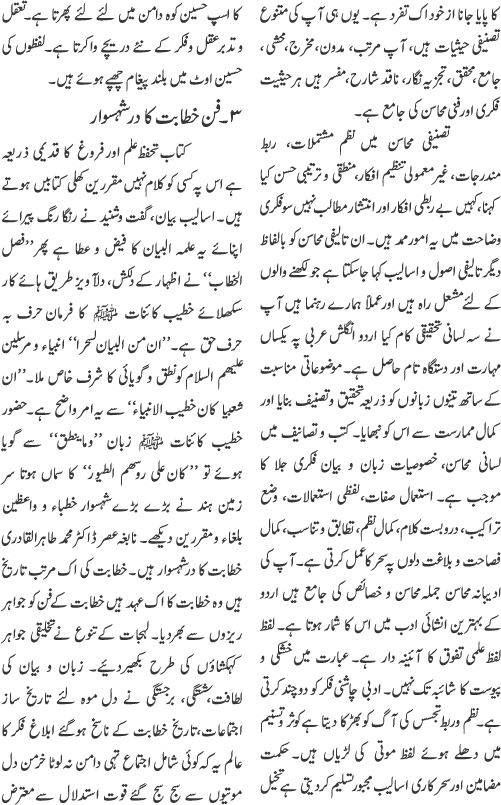 کا پایا جانا از خود اک تفرد ہے۔ یوں ہی آپ کی متنوع
تصنیفی حیثیات ہیں، آپ مرتب، مدون، مخرج، محشی،
جامع، محقق، تجزیہ نگار، ناقد شارح، مفسر ہیں ہر حیثیت
فکری اور فنی محاسن کی جامع ہے۔
تصنیفی محاسن میں نظم مشتملات، ربط
مندرجات، غیر معمولی تنظیم افکار، منطقی و ترتیبی حسن کیا
کہنا، کہیں بے ربطی افکار اور انتشار مطالب نہیں سو فکری
وضاحت میں یہ امور ممد ہیں۔ ان تالیفی محاسن کو بالفاظ
دیگر تالیفی اصول و اسالیب کہا جاسکتا ہے جو لکھنے والوں
کے لئے مشعل راہ ہیں اور عملاً ہمارے رہنما ہیں آپ
نے سہ لسانی تحقیقی کام کیا اردو انگلش عربی پہ یکساں
مہارت اور دستگاہ تام حاصل ہے۔ موضوعاتی مناسبت
کے ساتھ تینوں زبانوں کو ذریعہ تحقیق و تصنیف بنایا اور
کمال ممارست سے اس کو نبھایا۔ کتب و تصانیف میں
لسانی محاسن، خصوصیات زبان و بیان فکری جلا کا
موجب ہے۔ استعمال صفات، لفظی استعمالات، وضع
تراکیب، دروبست کلام، کمال نظم، تطابق و تناسب، کمال
فصاحت و بلاغت دلوں پہ سحر کا عمل کرتی ہے۔ آپ کی
ادیبانہ محاسن جملہ محاسن و خصائص کی جامع ہیں اردو
کے بہترین انشائی ادب میں اس کا شمار ہوتا ہے۔ لفظ
لفظ علمی تفوق کا آئینہ دار ہے۔ عبارت میں خشکی و
پیوست کا شائبہ تک نہیں۔ ادبی چاشنی فکر کو دوچند کرتی
ہے۔ نظم و ربط تجسس کی آگ کو بھڑکا دیتا ہے کوثر و تسنیم
میں دھلے ہوئے لفظ موتی کی لڑیاں ہیں۔ حکمت
مضامین اور سحر کاری اسالیب مجبور تسلیم کردیتی ہے تخیل
کا اسپ حسین کوہ دامن میں لئے لئے پھرتا ہے۔ تعقل
و تدبر عقل و فکر کے نئے دریچے وا کرتا ہے۔ لفظوں کی
حسین اوٹ میں بلند پیغام چھپے ہوئے ہیں۔
۳۔ فن خطابت کا در شہسوار
کتاب تحفظ علم اور فروغ کا قدیمی ذریعہ
ہے اس پہ کسی کو کلام نہیں مقررین کھلی کتابیں ہوتے
ہیں۔ اسالیب بیان، گفت و شنید نے رنگا رنگ پیرائے
اپنائے یہ علمہ البیان کا فیض و عطا ہے پھر ’’فصل
الخطاب‘‘ نے اظہار کے دلکش، دلآویز طریق ہائے کار
سکھلائے خطیب کائنات ﷺ کا فرمان حرف بہ
حرف حق ہے۔ ’’ان من البیان لسحرا‘‘ انبیاء و مرسلین
علیھم السلام کو نطق و گویائی کا شرف خاص ملا۔ ’’ان
شعیبا کان خطیب الانبیاء‘‘ سے یہ امر واضح ہے۔ حضور
خطیب کائنات ﷺ زبان ’’وما ینطق‘‘ سے گویا
ہوئے تو ’’کان علی روھم الطیور‘‘ کا سماں ہوتا سر
زمین ہند نے بڑے بڑے شہسوار خطباء و واعظین
بلغاء و مقررین دیکھے۔ نابغہ عصر ڈاکٹر محمد طاہرالقادری
خطابت کا در شہسوار ہیں۔ خطابت کی اک مرتب تاریخ
ہیں وہ خطابت کا اک عہد ہیں خطابت کے فن کو جواہر
ریزوں سے بھردیا۔ لہجات کے تنوع نے تخلیقی جواہر
کہکشاؤں کی طرح بکھیر دیئے۔ زبان و بیان کی
لطافت، شستگی، برجستگی نے دل موہ لئے تاریخ ساز
اجتماعات، تاریخ خطابت کے ناسخ ہوگئے ابلاغ فکر کا
عالم یہ کہ کوئی شامل اجتماع تہی دامن نہ لوٹا خرمن دل
موتیوں سے سج سج گئے قوت استدلال سے معترض